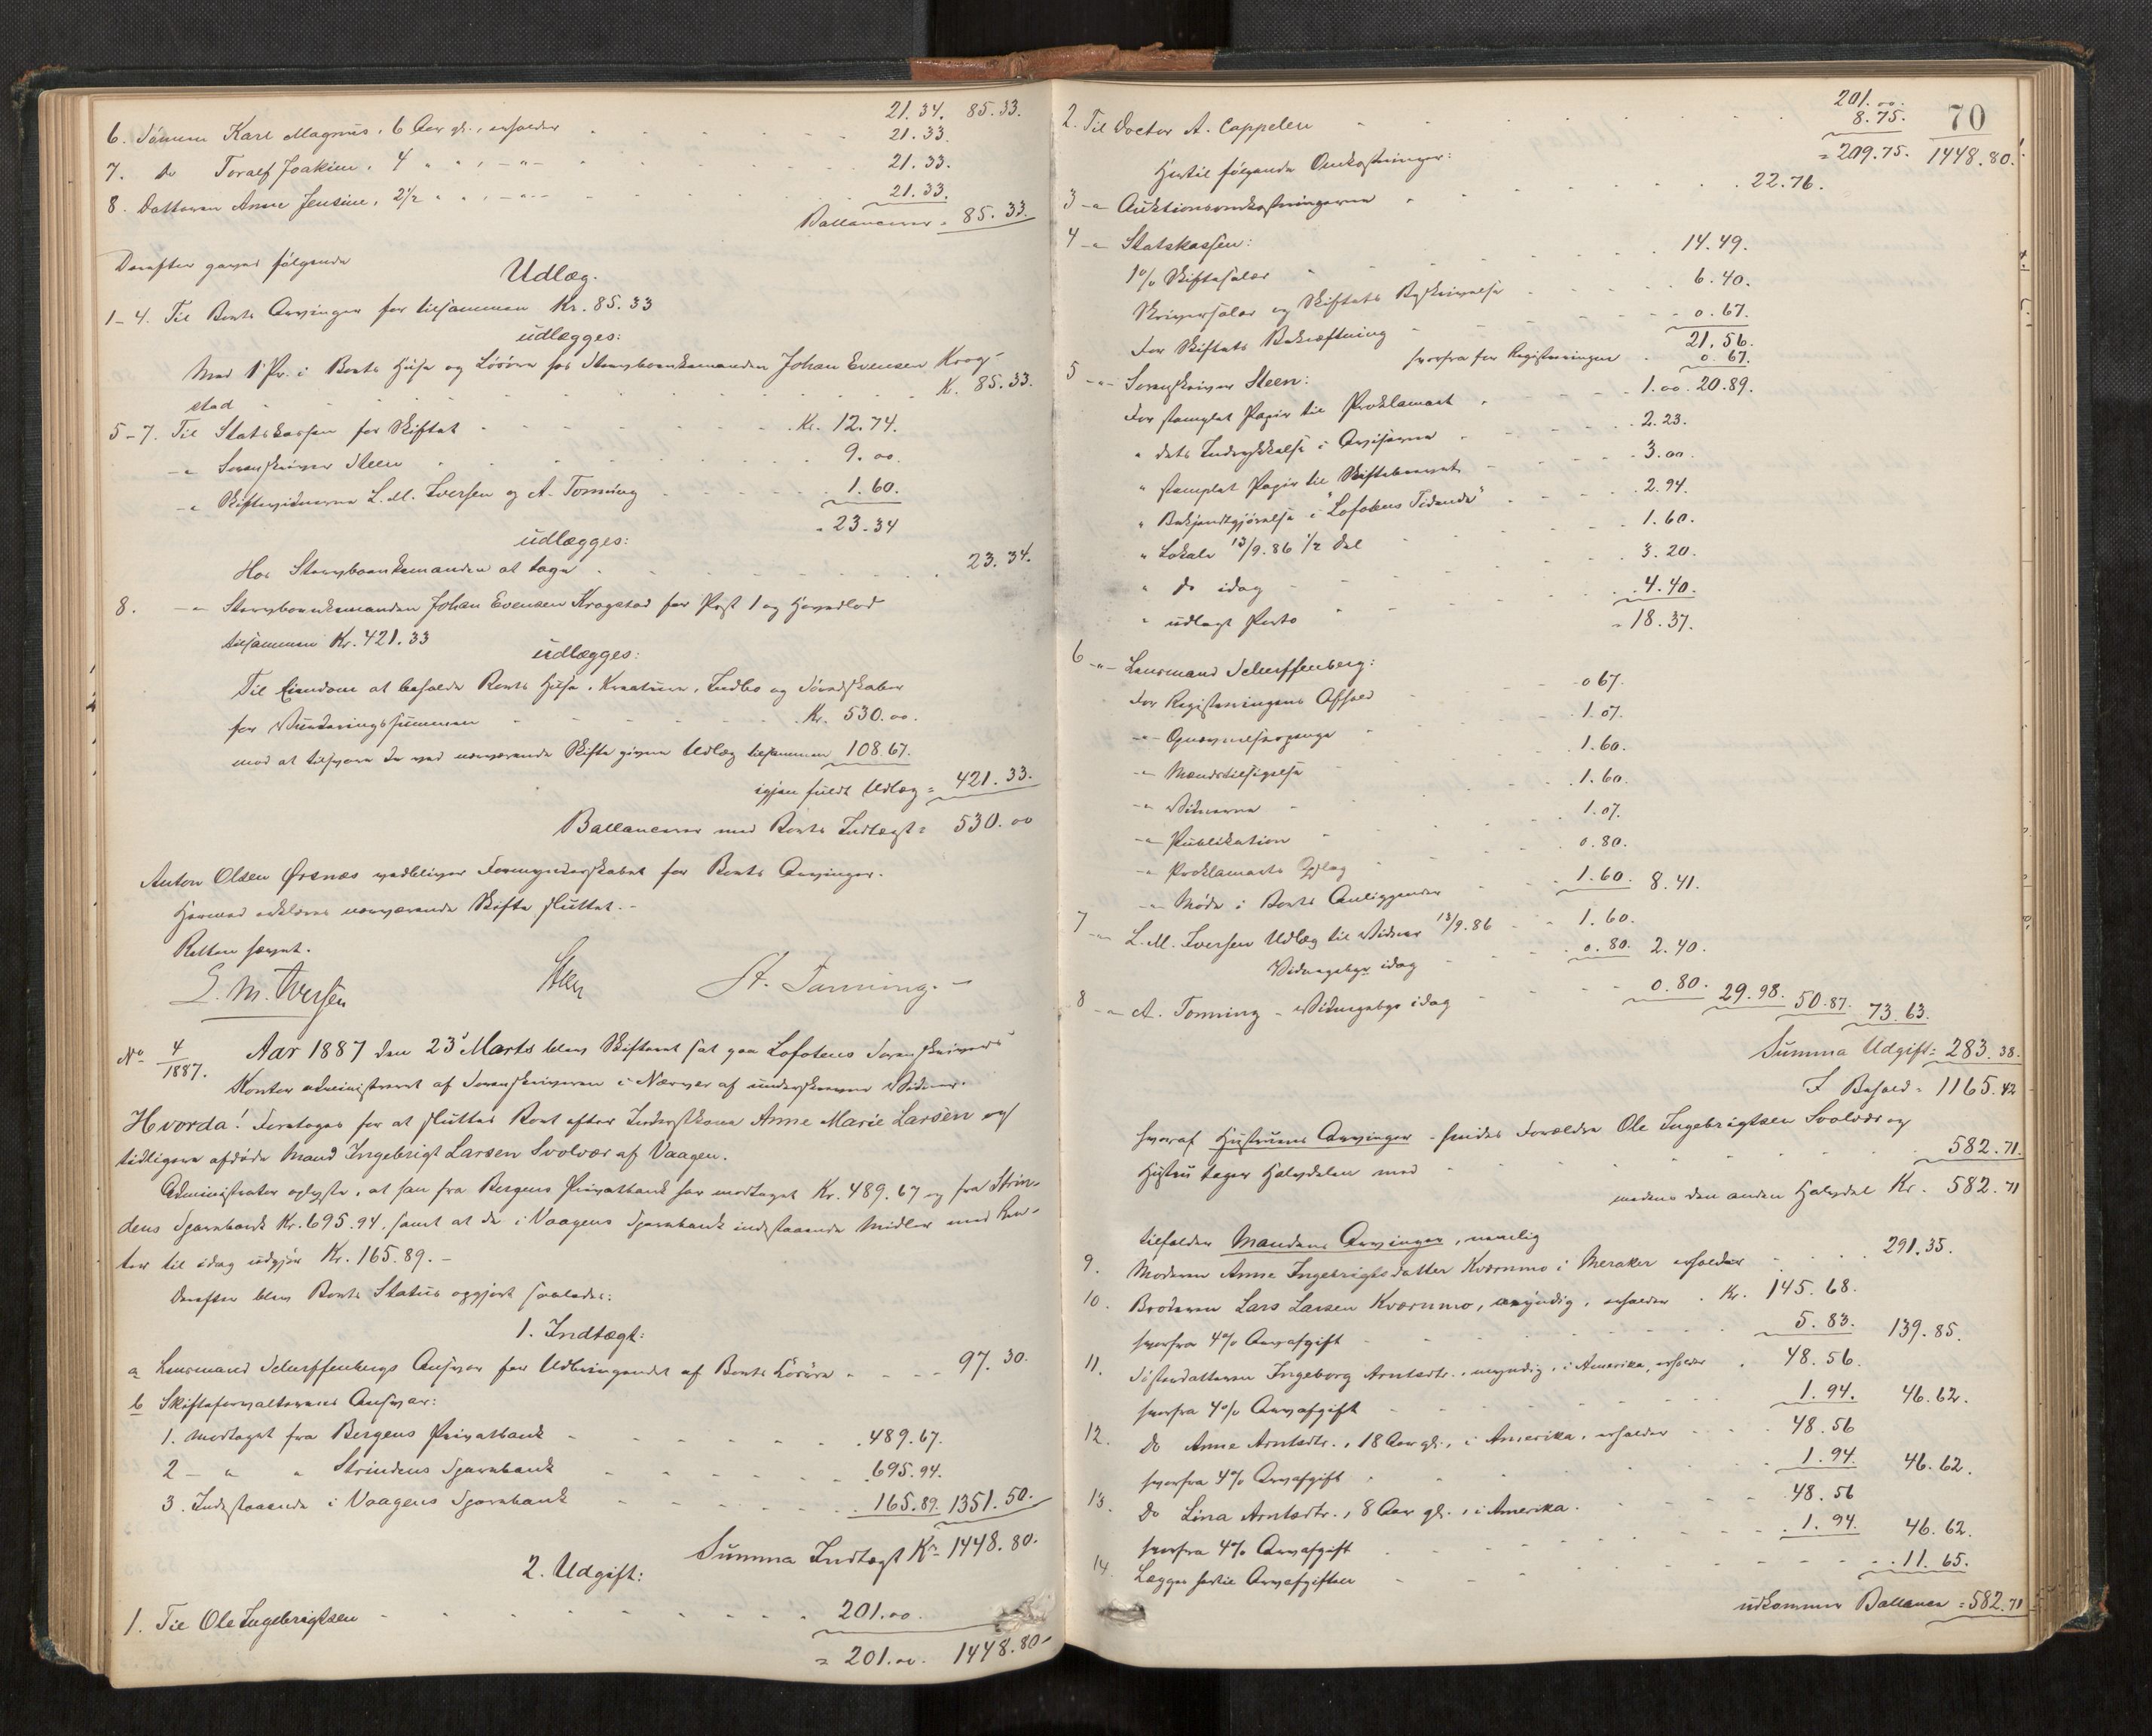 21.34. 85.33.
6. Sønnen Karl Magnus, 6 Aar gl., erholder 21.33.
7. do Toralf Joakim, 4 " " , -"- 21.33.
8. Datteren Anne Jensine, 2 1/2 " " , -"- 21.33.
Ballancerer = 85.33.
Derefter gaves følgende
Udlæg.
1-4. Til Boets Arvinger for tilsammen Kr. 85.33
udlægges:
Med 1' Pr. i Boets Huse og Løsøre hos Stervboenkemanden Johan Evensen Krog-
stad Kr. 85.33.
5-7. Til Statskassen for Skiftet Kr. 12.74.
-"- Sorenskriver Steen 9.00.
-"- Skiftevidnerne L. M. Iversen og A. Tonning 1.60.
= 23.34
udlægges:
Hos Stervboenkemanden at tage 23.34.
8. -"- Stervboenkemanden Johan Evensen Krogstad for Post 1 og Hovedlod
tilsammen Kr. 421.33
udlægges:
Til Eiendom at beholde Boets Huse, Kreaturer, Indbo og Søredskaber
for Vurderingssummen Kr. 530.00.
mod at tilsvare de ved nærværende Skifte givne Udlæg tilsammen 108.67.
igjen fuldt Udlæg = 421.33.
Ballancerer med Boets Indtægt = 530.00
Anton Olsen Ørsnæs vedbliver Formynderskabet for Boets Arvinger.
Hermed erklæres nærværende Skifte sluttet. -
Retten hævet.
L. M. Iversen Steen A. Tonning. -
No 4/1887. Aar 1887 den 23' Marts blev Skifteret sat paa Lofotens Sorenskrivers
Kontor administreret af Sorenskriveren i Nærvær af underskrevne Vidner.
Hvorda! Foretoges for at sluttes Boet efter Inderstkone Anne Marie Larsen og
tidligere afdøde Mand Ingebrigt Larsen Svolvær af Vaagen.
Administrator oplyste, at han fra Bergens Privatbank har modtaget Kr. 489.67 og fra Strin-
dens Sparebank Kr. 695.94, samt at de i Vaagens Sparebank indestaaende Midler med Ren-
ter til idag udgjør Kr. 165.89. -
Derefter blev Boets Status opgjort saaledes:
1. Indtægt:
a Lensmand Scheffenbergs Ansvar for Udbringendet af Boets Løsøre 97.30.
b Skifteforvalterens Ansvar:
1. Modtaget fra Bergens Privatbank 489.67.
2 - " " Strindens Sparebank 695.94.
3. Indestaaende i Vaagens Sparebank 165.89. 1351.50.
Summa Indtægt Kr. 1448.80.
2. Udgift:
1. Til Ole Ingebrigtsen 201.00.
= 201.00. 1448.80
70
201.00.
2. Til Doctor A. Cappelen 8.75.
= 209.75. 1448.80.
Hertil følgende Omkostninger:
3 -"- Auktionsomkostningerne 22.76.
4 -"- Statskassen:
1% Skiftesalær 14.49.
Skriversalær og Skiftets Beskrivelse 6.40.
For Skiftets Bekræftning 0.67.
21.56.
herfra for Registreringen 0.67.
20.89.
5 -"- Sorenskriver Steen:
For stemplet Papir til Proklamaet 1.00.
" dets Indrykkelse i Aviserne 2.23.
" stemplet Papir til Skiftebrevet 3.00.
" Bekjendtgjørelse i "Lofotens Tidende" 2.94.
" Lokale 13/9.86 1/2 Del 1.60.
" do idag 3.20.
" udlagt Porto 4.40.
= 18.37.
6 -"- Lensmand Scheffenberg:
For Registreringens Afhold 0.67.
-"- Opnævnelsespenge 1.07.
-"- Mændstilsigelse 1.60.
-"- Vidnerne 1.60.
-"- Publikation 1.07.
-"- Proklamaets Opslag 0.80.
-"- Møde i Boets Anliggender 1.60. 8.41.
7 -"- L. M. Iversen Udlæg til Vidner 13/9.86 1.60.
Vidnegebyr idag 0.80. 2.40.
8 -"- A. Tonning - Vidnegebyr idag 0.80. 29.98. 50.87. 73.63.
Summa Udgift = 283.38.
I Behold = 1165.42
hvoraf Hustruens Arvinger - hendes Forældre Ole Ingebrigtsen Svolvær og
Hustru tager Halvdelen med 582.71.
medens den anden Halvdel Kr. 582.71
tilfalder Mandens Arvinger, nemlig
9. Moderen Anne Ingebrigtsdatter Kværnmo i Meraker erholder 291.35.
10. Broderen Lars Larsen Kværnmo, myndig, erholder Kr. 145.68.
herfra 4% Arveafgift 5.83. 139.85.
11. Søsterdatteren Ingeborg Arntsdtr., myndig, i Amerika, erholder 48.56.
herfra 4% Arveafgift 1.94. 46.62.
12. do Anne Arntsdtr., 18 Aar gl., i Amerika, erholder 48.56
herfra 4% Arveafgift 1.94. 46.62.
13. do Lina Arntsdtr., 8 Aar gl., i Amerika. 48.56
herfra 4% Arveafgift 1.94. 46.62.
14. Lægges hertil Arveafgiften 11.65.
udkommer Ballance = 582.71